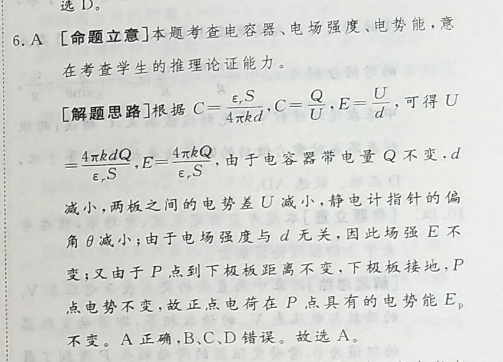 选 D。
6. A [命题立意]本题考查电容器、电场强度、电势能,意
在考查学生的推理论证能力。
[解题思路]根据 C=εᵣS/4πkd,C=Q/U,E=U/d,可得 U
=4πkdQ/εᵣS,E=4πkQ/εᵣS,由于电容器带电量 Q 不变,d
减小,两板之间的电势差 U 减小,静电计指针的偏
角 θ 减小;由于电场强度与 d 无关,因此场强 E 不
变;又由于 P 点到下极板距离不变,下极板接地,P
点电势不变,故正点电荷在 P 点具有的电势能 Eₚ
不变。A 正确,B、C、D 错误。故选 A。